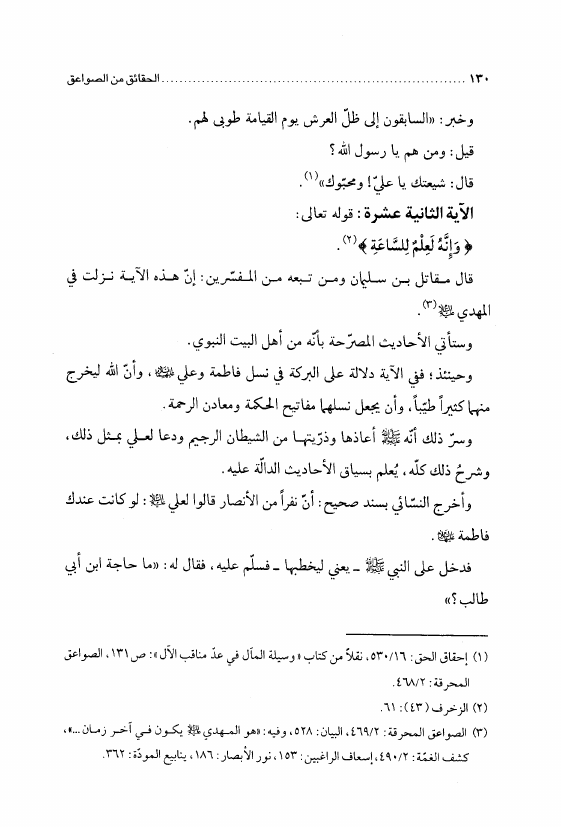 ١٣٠ ................................................................ الحقائق من الصواعق
وخبر: «السابقون إلى ظلّ العرش يوم القيامة طوبى لهم.
قيل: ومن هم يا رسول الله؟
قال: شيعتك يا عليّ! ومحبّوك»(١).
الآية الثانية عشرة: قوله تعالى:
﴿ وَإِنَّهُ لَعِلْمٌ لِلسَّاعَةِ ﴾(٢).
قال مقاتل بن سليمان ومن تبعه من المفسّرين: إنّ هذه الآية نزلت في
المهدي (٣).
وستأتي الأحاديث المصرّحة بأنّه من أهل البيت النبوي.
وحينئذ؛ ففي الآية دلالة على البركة في نسل فاطمة وعلي ، وأنّ الله ليخرج
منهما كثيراً طيّباً، وأن يجعل نسلهما مفاتيح الحكمة ومعادن الرحمة.
وسرّ ذلك أنّه ﷺ أعاذها وذرّيتها من الشيطان الرجيم ودعا لعلي بمثل ذلك،
وشرحُ ذلك كلّه، يُعلم بسياق الأحاديث الدالّة عليه.
وأخرج النسّائي بسند صحيح: أنّ نفراً من الأنصار قالوا لعلي : لو كانت عندك
فاطمة .
فدخل على النبي ﷺ ـ يعني ليخطبها ـ فسلّم عليه، فقال له: «ما حاجة ابن أبي
طالب؟»
(١) إحقاق الحق: ٥٣٠/١٦، نقلاً من كتاب «وسيلة المآل في عدّ مناقب الآل»: ص١٣١، الصواعق
المحرقة: ٤٦٨/٢.
(٢) الزخرف (٤٣): ٦١.
(٣) الصواعق المحرقة: ٤٦٩/٢، البيان: ٥٢٨، وفيه: «هو المهدي يكون في آخر زمان...»،
كشف الغمّة: ٤٩٠/٢، إسعاف الراغبين: ١٥٣، نور الأبصار: ١٨٦، ينابيع المودّة: ٣٦٢.